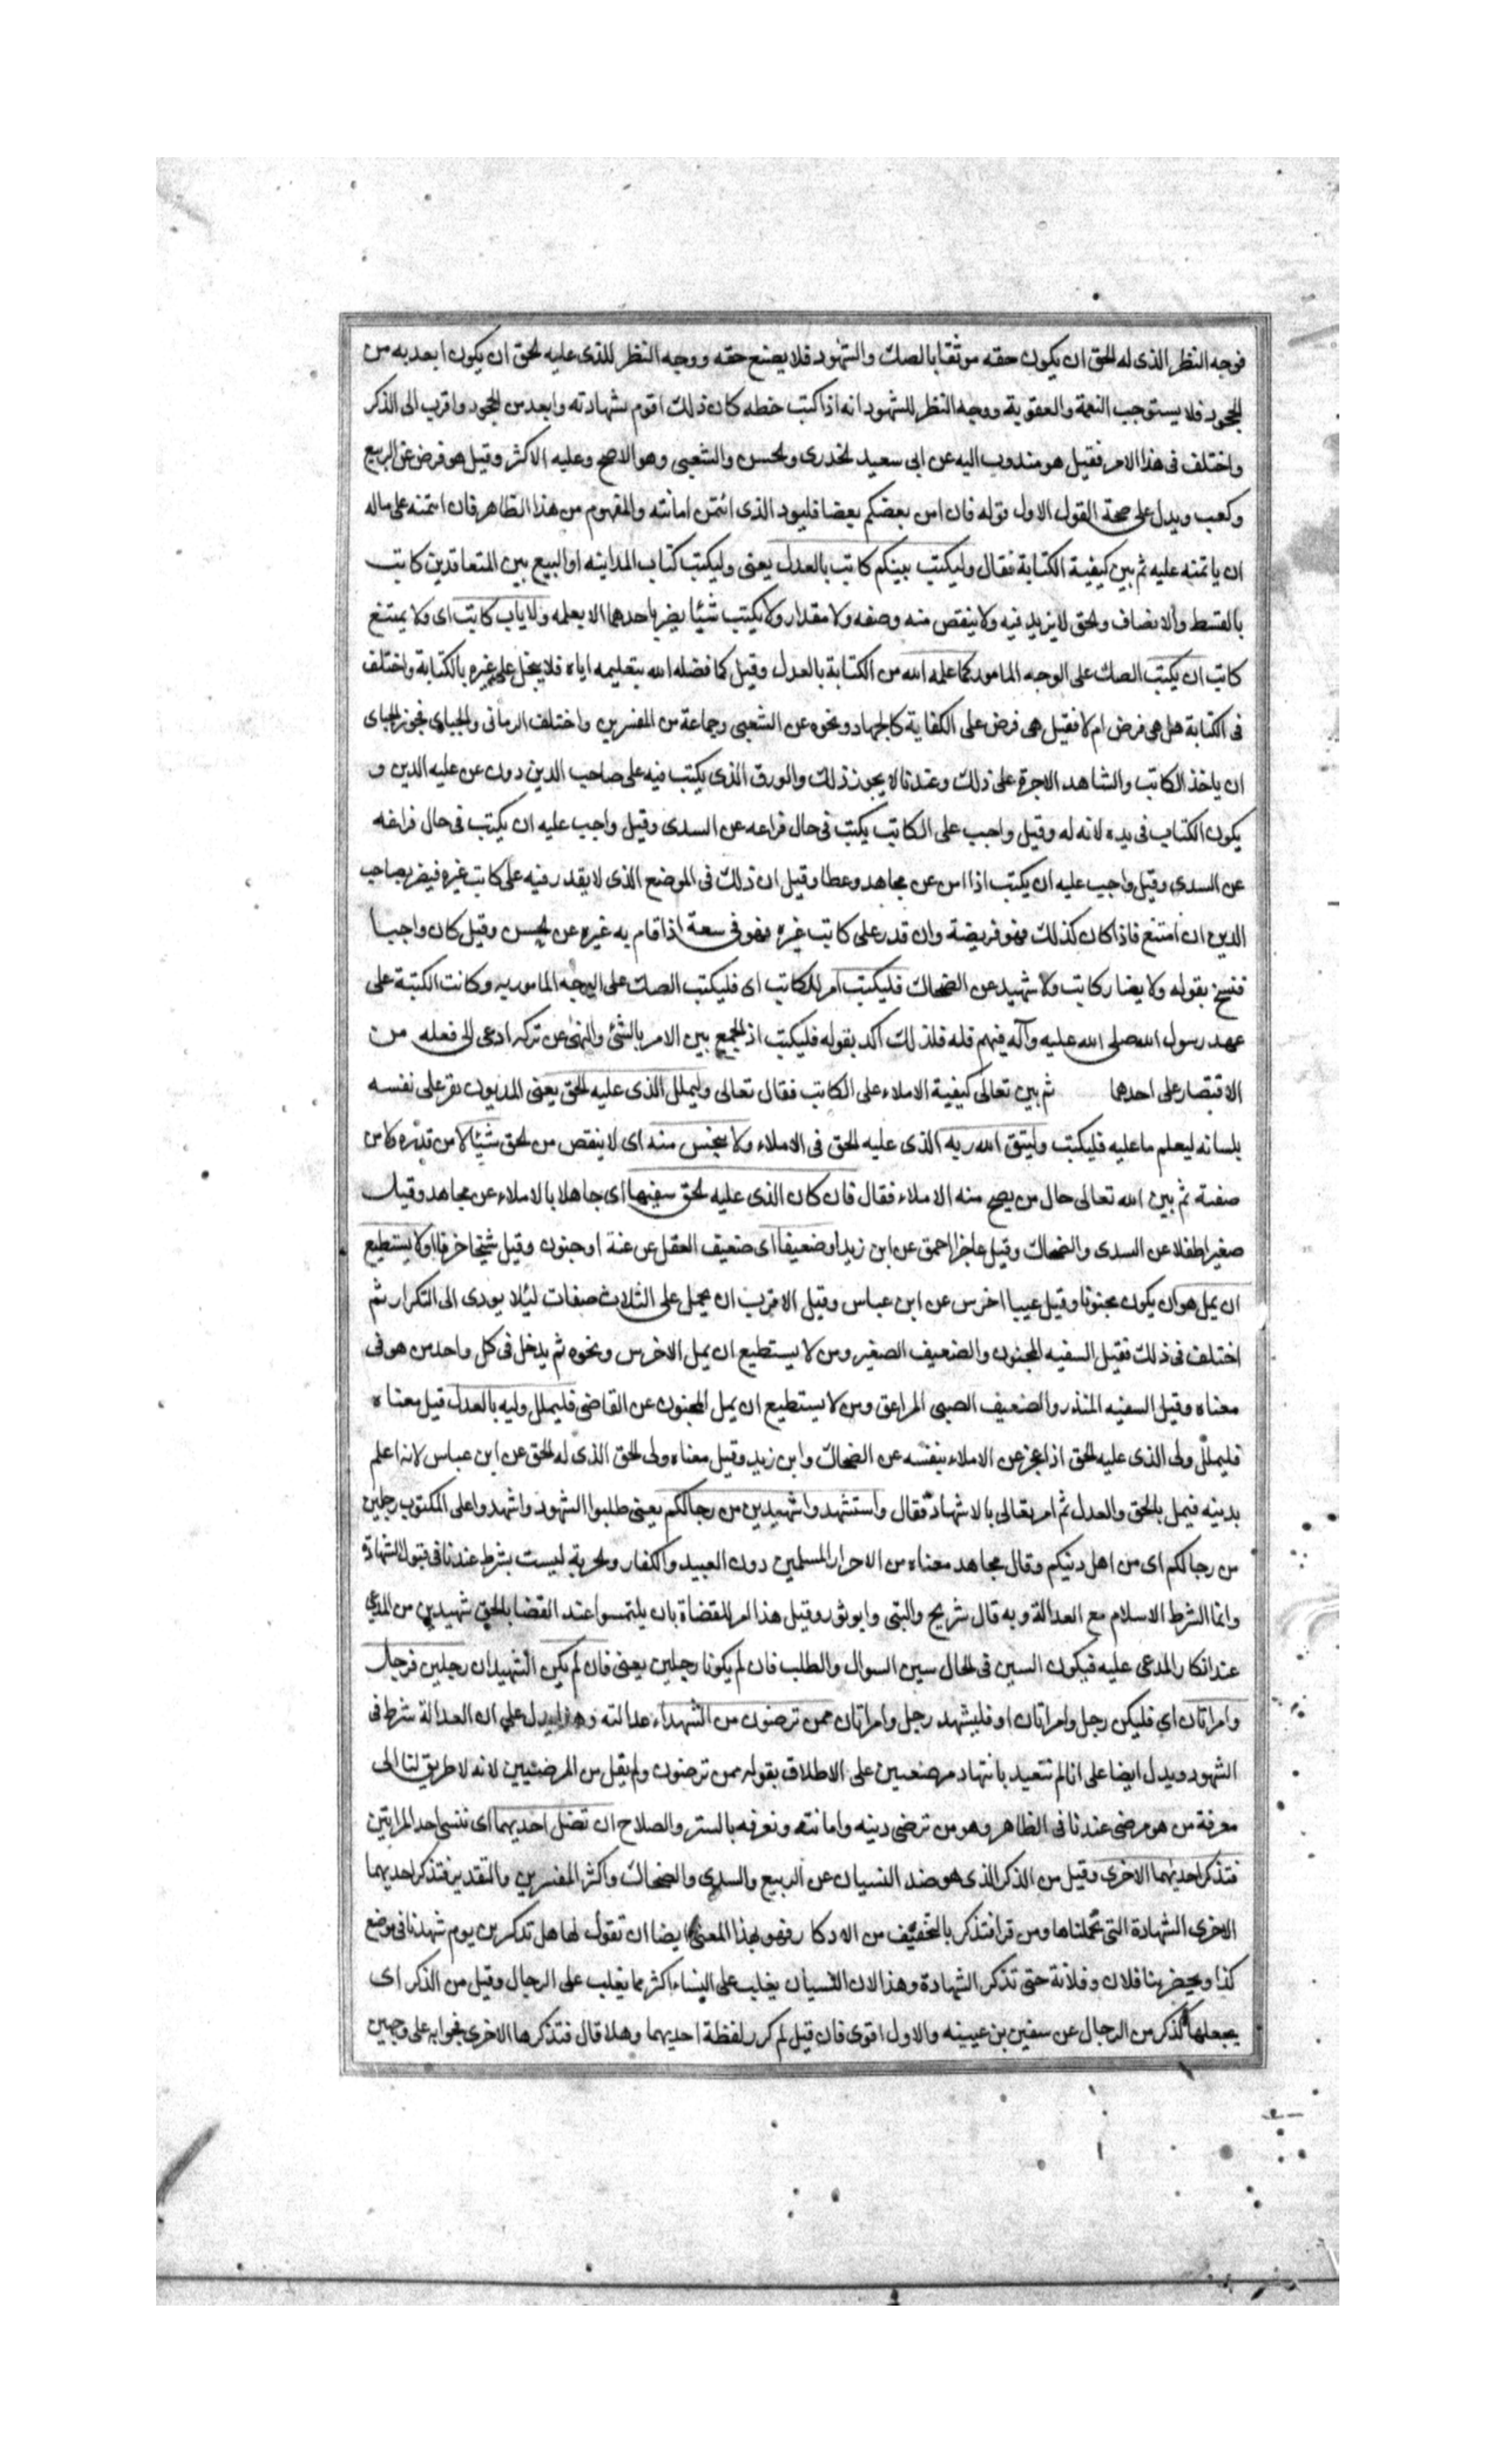 فوجه النظر الذى له الحق ان يكون حقه موثقا بالصك والشهود فلا يضيع حقه ووجه النظر للذى عليه الحق ان يكون ابعد به من
الجحود فلا يستوجب النقمة والعقوبة ووجه النظر للشهود انه اذا كتب خطه كان ذلك اقوم بشهادته وابعد من الجحود واقرب الى الذكر
واختلف فى هذا الامر فقيل هو مندوب اليه عن ابى سعيد الخدرى والحسن والشعبى وهو الاصح وعليه الاكثر وقيل هو فرض عن الربيع
وكعب ويدل على صحة القول الاول قوله فان امن بعضكم بعضا فليود الذى ائتمن امانته والمفهوم من هذا الظاهر فان ائتمنه على ماله
ان ياتمنه عليه ثم بين كيفية الكتابة فقال وليكتب بينكم كاتب بالعدل يعنى وليكتب كتاب المداينه او البيع بين المتعاقدين كاتب
بالقسط والانصاف والحق لا يزيد فيه ولا ينقص منه وصفه ولا مقدار ولا يكتب شيئا يضر باحدهما الا بعلمه ولا ياب كاتب اى ولا يمتنع
كاتب ان يكتب الصك على الوجه المامور كما علمه الله من الكتابة بالعدل وقيل كما فضله الله بتعليمه اياه فلا يبخل على غيره بالكتابة واختلف
فى الكتابة هل هى فرض ام لا فقيل هى فرض على الكفاية كالجهاد ونحوه عن الشعبى وجماعة من المفسرين واختلف الرمانى والجباى فجوز الجباى
ان ياخذ الكاتب والشاهد الاجرة على ذلك وعندنا لا يجوز ذلك والورق الذى يكتب فيه على صاحب الدين دون من عليه الدين و
يكون الكتاب فى يده لانه له وقيل واجب على الكاتب يكتب فى حال فراغه عن السدى وقيل واجب عليه ان يكتب فى حال فراغه
عن السدى وقيل واجب عليه ان يكتب اذا امن عن مجاهد وعطا وقيل ان ذلك فى الموضع الذى لا يقدر فيه على كاتب غيره فيضر بصاحب
الدين ان امتنع فاذا كان كذلك فهو فريضة وان قدر على كاتب غيره فهو فى سعة اذا قام به غيره عن الحسن وقيل كان واجبا
فنسخ بقوله ولا يضار كاتب ولا شهيد عن الضحاك فليكتب امر للكاتب اى فليكتب الصك على الوجه المامور به وكانت الكتبة على
عهد رسول الله صلى الله عليه وآله فيهم قله فلذلك اكد بقوله فليكتب اذ الجمع بين الامر بالشئ والنهى عن تركه ادعى الى فعله من
الاقتصار على احدهما ثم بين تعالى كيفية الاملاء على الكاتب فقال تعالى وليملل الذى عليه الحق يعنى المديون يقر على نفسه
بلسانه ليعلم ما عليه فليكتب وليتق الله ربه الذى عليه الحق فى الاملاء ولا يبخس منه اى لا ينقص من الحق شيئا لا من قدره ولا من
صفته ثم بين الله تعالى حال من يصح منه الاملاء فقال فان كان الذى عليه الحق سفيها اى جاهلا بالاملاء عن مجاهد وقيل
صغيرا طفلا عن السدى والضحاك وقيل عاجزا احمق عن ابن زيد او ضعيفا اى ضعيف العقل عن عتة او جنون وقيل شيخا خرفا او لا يستطيع
ان يمل هو ان يكون مجنونا وقيل عييا اخرس عن ابن عباس وقيل الاقرب ان يحمل على الثلاث صفات ليئلا يودى الى التكرار ثم
اختلف فى ذلك فقيل السفيه المجنون والضعيف الصغير ومن لا يستطيع ان يمل الاخرس ونحوه ثم يدخل فى كل واحد من هو فى
معناه وقيل السفيه المبذر والضعيف الصبى المراهق ومن لا يستطيع ان يمل المجنون عن القاضى فليملل وليه بالعدل قيل معناه
فليملل ولى الذى عليه الحق اذا عجز عن الاملاء بنفسه عن الضحاك وابن زيد وقيل معناه ولى الحق الذى له الحق عن ابن عباس لانه اعلم
بدينه فيمل بالحق والعدل ثم امر تعالى بالاشهاد فقال واستشهدوا شهيدين من رجالكم يعنى طلبوا الشهود واشهدوا على المكتوب رجلين
من رجالكم اى من اهل دينكم وقال مجاهد معناه من الاحرار المسلمين دون العبيد والكفار والحرية ليست بشرط عندنا فى قبول الشهادة
وانما الشرط الاسلام مع العدالة وبه قال شريح والبتى وابو ثور وقيل هذا امر للقضاة بان يلتمسوا عند القضا بالحق شهيدين من المدعى
عند انكار المدعى عليه فيكون السين فى الحال سين السوال والطلب فان لم يكونا رجلين يعنى فان لم يكن الشهيدان رجلين فرجل
وامراتان اى فليكن رجل وامراتان او فليشهد رجل وامراتان ممن ترضون من الشهداء عدالته وهذا يدل على ان العدالة شرط فى
الشهود ويدل ايضا على انا لم نتعبد باشهاد مرضيين على الاطلاق بقوله ممن ترضون ولم يقل من المرضيين لانه لا طريق لنا الى
معرفة من هو مرضى عندنا فى الظاهر وهو من ترضى دينه وامانته ونعرفه بالستر والصلاح ان تضل احديهما اى تنسى احد المراتين
فتذكر احديهما الاخرى وقيل من الذكر الذى هو ضد النسيان عن الربيع والسدى والضحاك واكثر المفسرين والتقدير فتذكر احديهما
الاخرى الشهادة التى تحملتاها ومن قرا فتذكر بالتخفيف من الاذكار فهو بهذا المعنى ايضا ان تقول لها هل تذكرين يوم شهدنا فى موضع
كذا وبحضرتنا فلان وفلانة حتى تذكر الشهادة وهذا لان النسيان يغلب على النساء اكثر مما يغلب على الرجال وقيل من الذكر اى
يجعلها كذكر من الرجال عن سفين بن عيينه والاول اقوى فان قيل لم كرر لفظة احديهما وهلا قال فتذكرها الاخرى فجوابه على وجهين